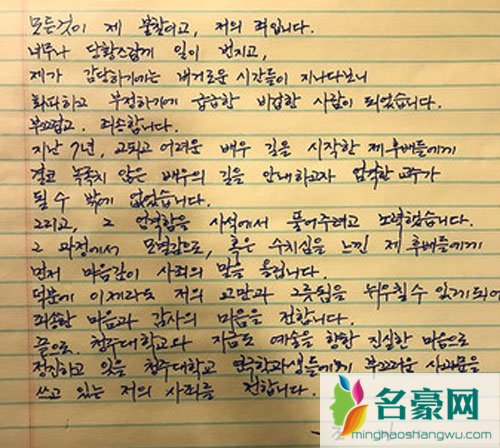 모든것이 제 불찰이고, 저의 죄입니다.
너무나 당황스럽게 일이 번지고,
제가 감당하기에는 버거운 시간들이 지나다보니
회피하고 부정하기에 급급한 비겁한 사람이 되었습니다.
부끄럽고. 죄송합니다.
지난 7년, 고되고 어려운 배우 길을 시작한 제 후배들에게
결코 녹록지 않은 배우의 길을 안내하고자 엄격한 교수가
될 수 밖에 없었습니다.
그리고, 그 엄격함을 사석에서 풀어주려고 노력했습니다.
그 과정에서 모멸감으로, 혹은 수치심을 느낀 제 후배들에게
먼저 마음깊이 사죄의 말을 올립니다.
덕분에 이제라도 저의 교만과 그릇됨을 뉘우칠 수 있게되어
죄송한 마음과 감사의 마음을 전합니다.
끝으로. 청주대학교와 지금도 예술을 향한 진실한 마음으로
정진하고 있을 청주대학교 연극학과생들에게 부끄러운 사과문을
쓰고 있는 저의 사죄를 전합니다.
名豪网
minghaoshangwu.com